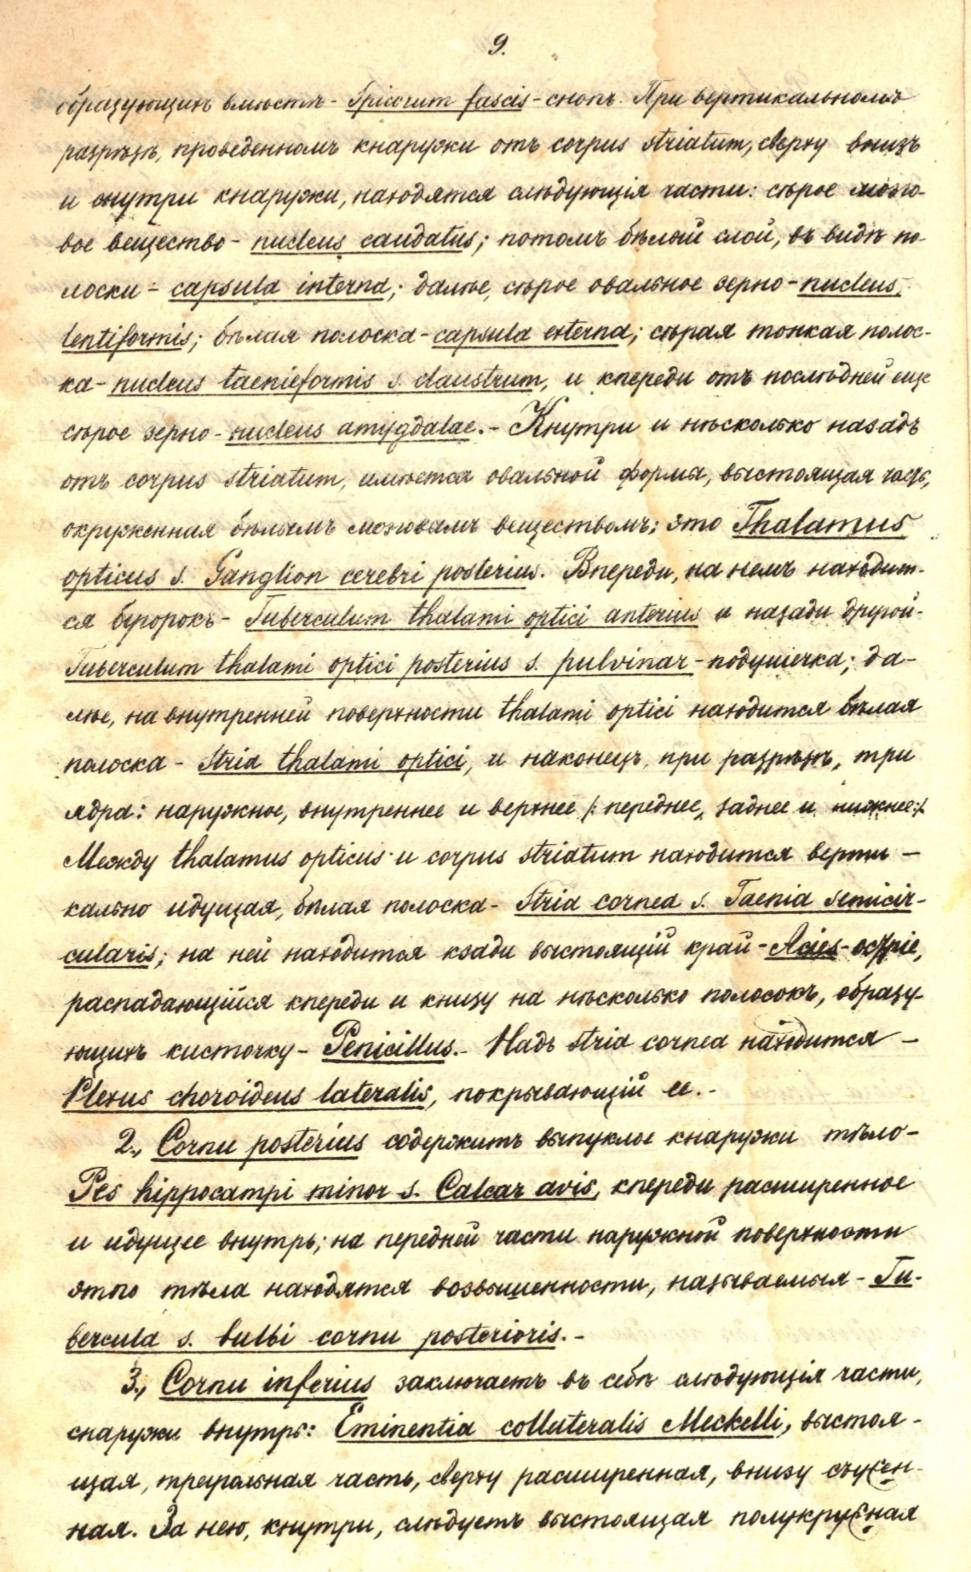 9.
образующихъ вмѣстѣ - Spicorum fascis - снопъ. При вертикальномъ
разрѣзѣ, проведенномъ кнаружи отъ corpus striatum, сверху внизъ
и снутри кнаружи, находятся слѣдующія части: сѣрое мозго-
вое вещество - nucleus caudatus; потомъ бѣлый слой, въ видѣ по-
лоски - capsula interna; далѣе, сѣрое овальное зерно - nucleus
lentiformis; бѣлая полоска - capsula externa; сѣрая тонкая полос-
ка - nucleus taenieformis s. claustrum, и кпереди отъ послѣдней еще
сѣрое зерно - nucleus amygdalae. - Кнутри и нѣсколько назадъ
отъ corpus striatum, имѣется овальной формы, выстоящая часть,
окруженная бѣлымъ мозговымъ веществомъ; это Thalamus
opticus s. Ganglion cerebri posterius. Впереди, на немъ находит-
ся бугорокъ - Tuberculum thalami optici anterius и назади другой -
Tuberculum thalami optici posterius s. pulvinar - подушечка; да-
лѣе, на внутренней поверхности thalami optici находится бѣлая
полоска - Stria thalami optici, и наконецъ, при разрѣзѣ, три
ядра: наружное, внутреннее и верхнее /: переднее, заднее и нижнее :/
Между thalamus opticus и corpus striatum находится верти -
кально идущая, бѣлая полоска - Stria cornea s. Taenia semicir-
cularis; на ней находится кзади выстоящій край - Acies - остріе,
распадающійся кпереди и книзу на нѣсколько полосокъ, образу-
ющихъ кисточку - Penicillus. - Надъ stria cornea находится -
Plexus choroideus lateralis, покрывающій ее. -
2., Cornu posterius содержитъ выпуклое кнаружи тѣло -
Pes hippocampi minor s. Calcar avis, кпереди расширенное
и идущее внутрь; на передней части наружной поверхности
этого тѣла находятся возвышенности, называемыя - Tu-
bercula s. bulbi cornu posterioris. -
3., Cornu inferius заключаетъ въ себѣ слѣдующія части,
снаружи внутрь: Eminentia collateralis Meckelli, выстоя -
щая, треугольная часть, сверху расширенная, внизу съужен-
ная. За нею, кнутри, слѣдуетъ выстоящая полукружная